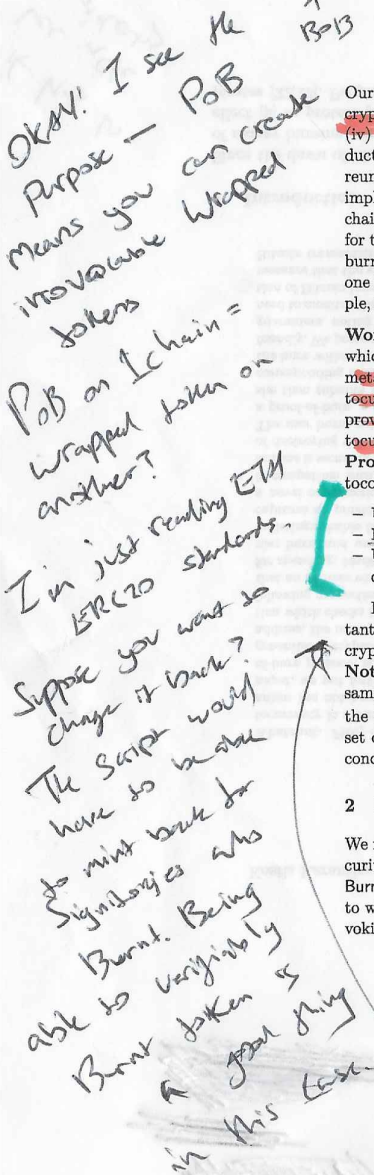 ↑
BOB
OKAY! I see the
Purpose — PoB
means you can create
irrevocable Wrapped
tokens
PoB on 1 chain =
wrapped token on
another?
I'm just reading ETH
ERC20 standards.
Suppose you want to
change it back?
The Script would
have to be able
to mint back for
Signitorgies who
Burnt. Being
able to verifiably
Burnt token is
a good thing
in this case.
Our
cryp
(iv)
duct
reun
impl
chai
for t
burn
one
ple,
Wor
whic
meta
tocu
prov
tocu
Pro
toco
tant
cryp
Not
sam
the
set o
conc
2
We
curit
Burn
to w
voki